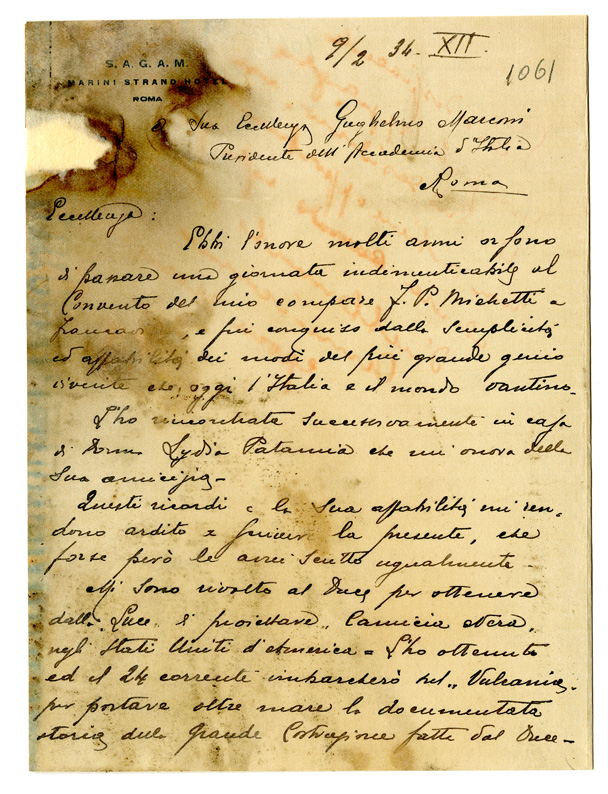 S. A. G. A. M.
MARINI STRAND HOTEL
ROMA
9/2 34. XII.
1061
Sua Eccellenza Guglielmo Marconi
Presidente dell'Accademia d'Italia
Roma
Eccellenza:
Ebbi l'onore molti anni or sono
di passare una giornata indimenticabile al
Convento del mio compare F. P. Michetti a
, e fui conquiso dalla semplicità
ed affabilità dei modi del più grande genio
vivente che oggi l'Italia e il mondo vantino.
L'ho rincontrato successivamente in casa
di Donna Lydia che mi onora della
Sua amicizia-
Questi ricordi e la Sua affabilità mi ren,
dono ardito a la presente, che
forse però le avrei scritto ugualmente-
Mi sono rivolto al Duce per ottenere
dalla "Luce di proiettare "Camicia Nera"
negli Stati Uniti d'America- L'ho ottenuto
ed il 24 corrente imbarcherò sul "Vulcania"
per portare oltre mare la documentata
storia della Grande Costruzione fatta dal Duce-